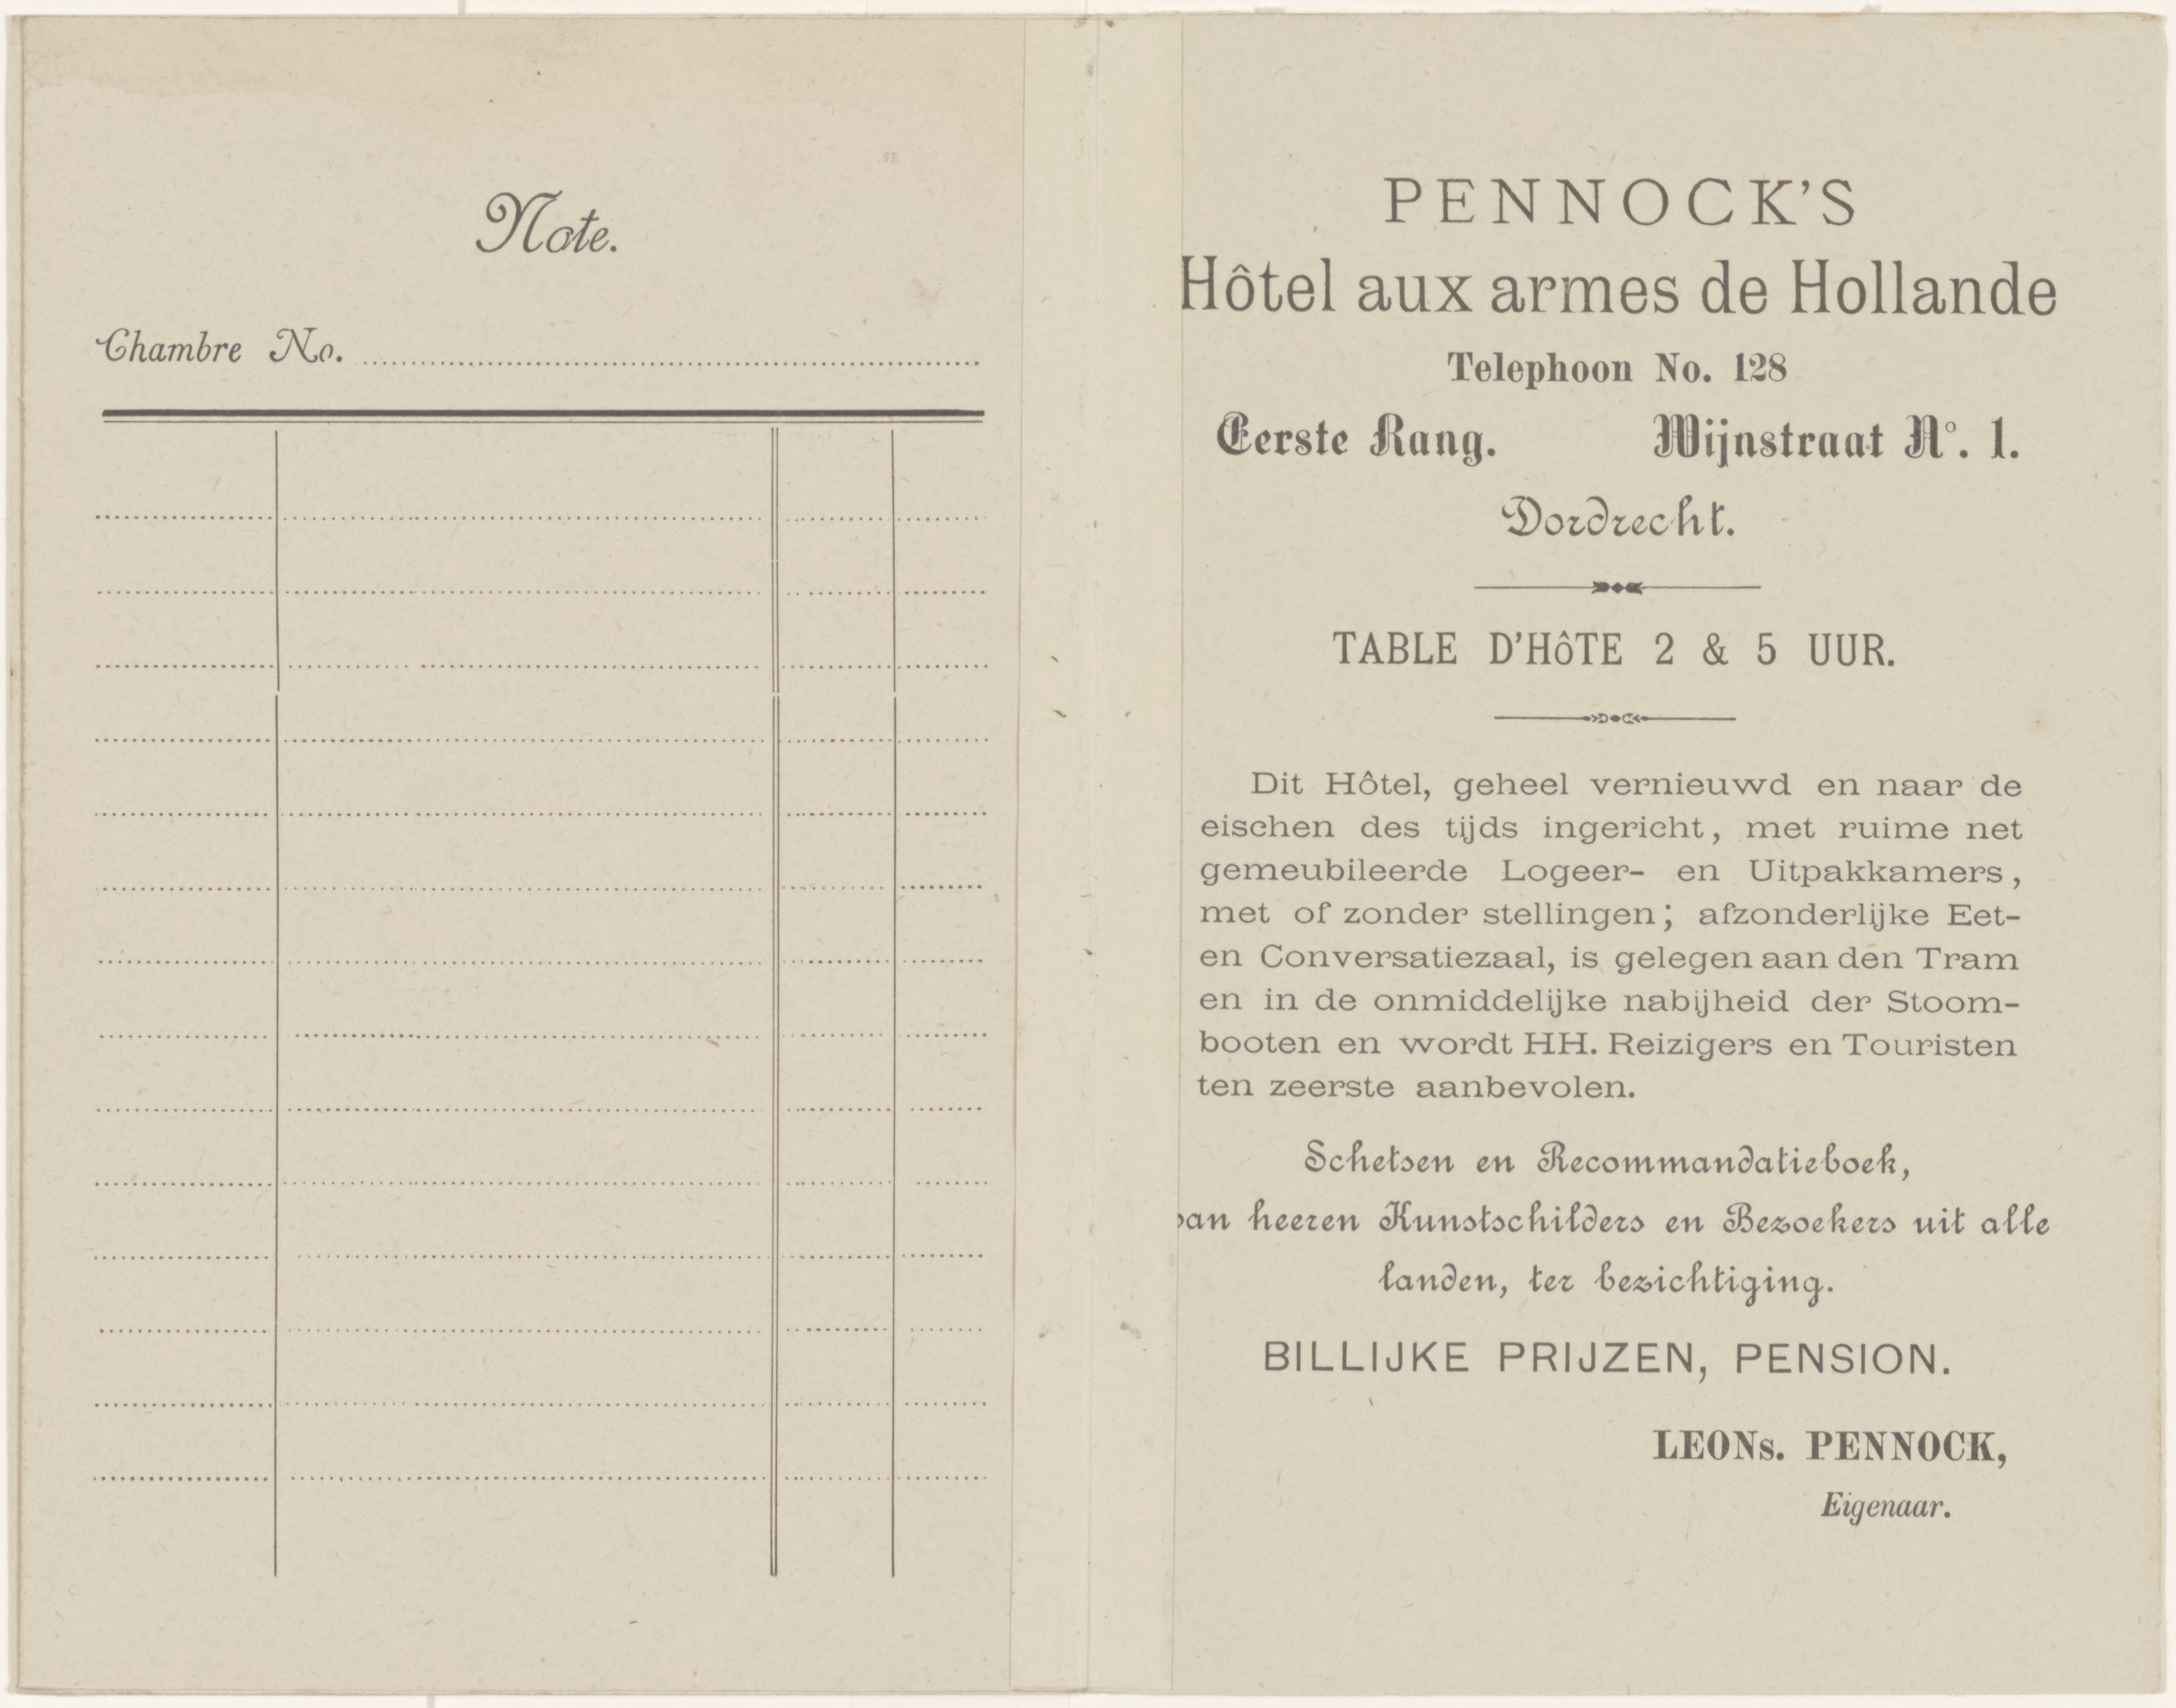 Note.
Chambre No.
PENNOCK'S
Hôtel aux armes de Hollande
Telephoon No. 128
Eerste Rang. Wijnstraat No. 1.
Dordrecht.
TABLE D'HôTE 2 & 5 UUR.
Dit Hôtel, geheel vernieuwd en naar de
eischen des tijds ingericht, met ruime net
gemeubileerde Logeer- en Uitpakkamers,
met of zonder stellingen; afzonderlijke Eet-
en Conversatiezaal, is gelegen aan den Tram
en in de onmiddelijke nabijheid der Stoom-
booten en wordt HH. Reizigers en Touristen
ten zeerste aanbevolen.
Schetsen en Recommandatieboek,
van heeren Kunstschilders en Bezoekers uit alle
landen, ter bezichtiging.
BILLIJKE PRIJZEN, PENSION.
LEONs. PENNOCK,
Eigenaar.